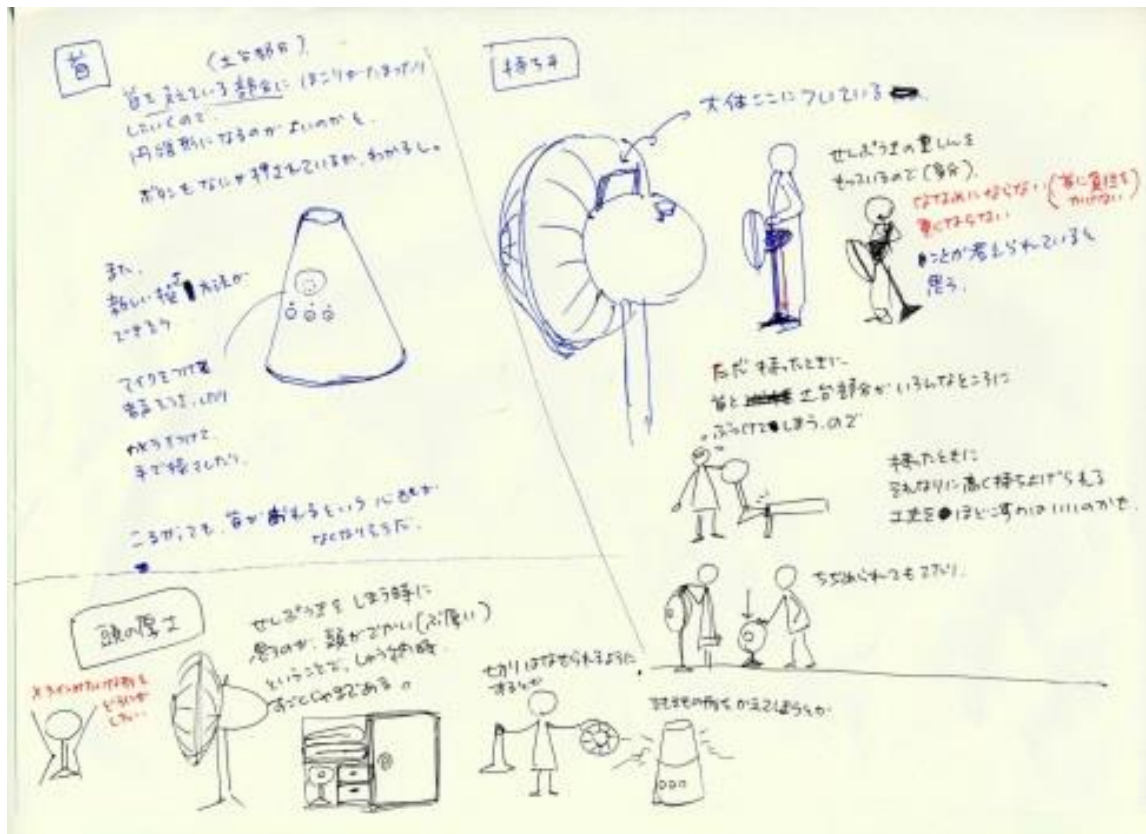 首
(土台部分)
首を支えている部分に ほこりがたまったり
していくので
円錐形になるのがよいのかも
ボタンもなにが押されているか、わかるし。
また、
新しい操作方法が
できそう
マイクをつけて
手で操さしたり、
ころがっても、首がおれるという心配が
なくなりそうだ。
持ち手
大体ここについている
せんぷうきの重しんを
もっているので(多分)、
ななめにならない(首に負担をかけない)
重くならない
ことが考えられていると
思う。
ただ 持ったときに
首と 土台部分がいろんなところに
ぶつけてしまうので
持ったときに
それなりに高く持ち上げられる
工夫をほどこすのはいいのかも
ちぢめられてもてたり、
頭の厚さ
せんぷうきを しまう時に
思うのが、頭がでかい(ぶ厚い)
ということで、しゅうのう時
すごくじゃまである。
切りはなせられるように
するとか
そもそもの形をかえてしまうとか